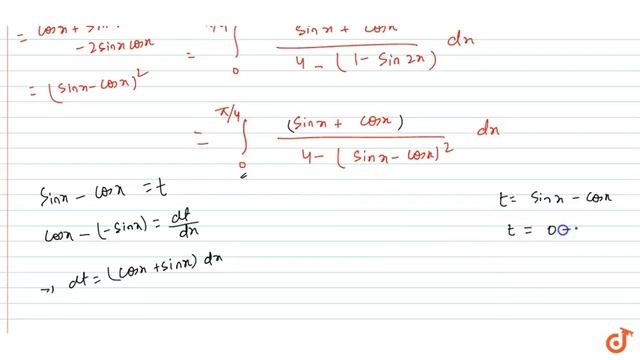 = cosx + sin
- 2 sinx cosx
= (sinx - cosx)²
= ∫₀^π/4 (sinx + cosx) / (4 - (1 - sin2x)) dx
= ∫₀^π/4 (sinx + cosx) / (4 - (sinx - cosx)²) dx
sinx - cosx = t
cosx - (-sinx) = dt/dx
→ dt = (cosx + sinx) dx
t = sinx - cosx
t = 0 -